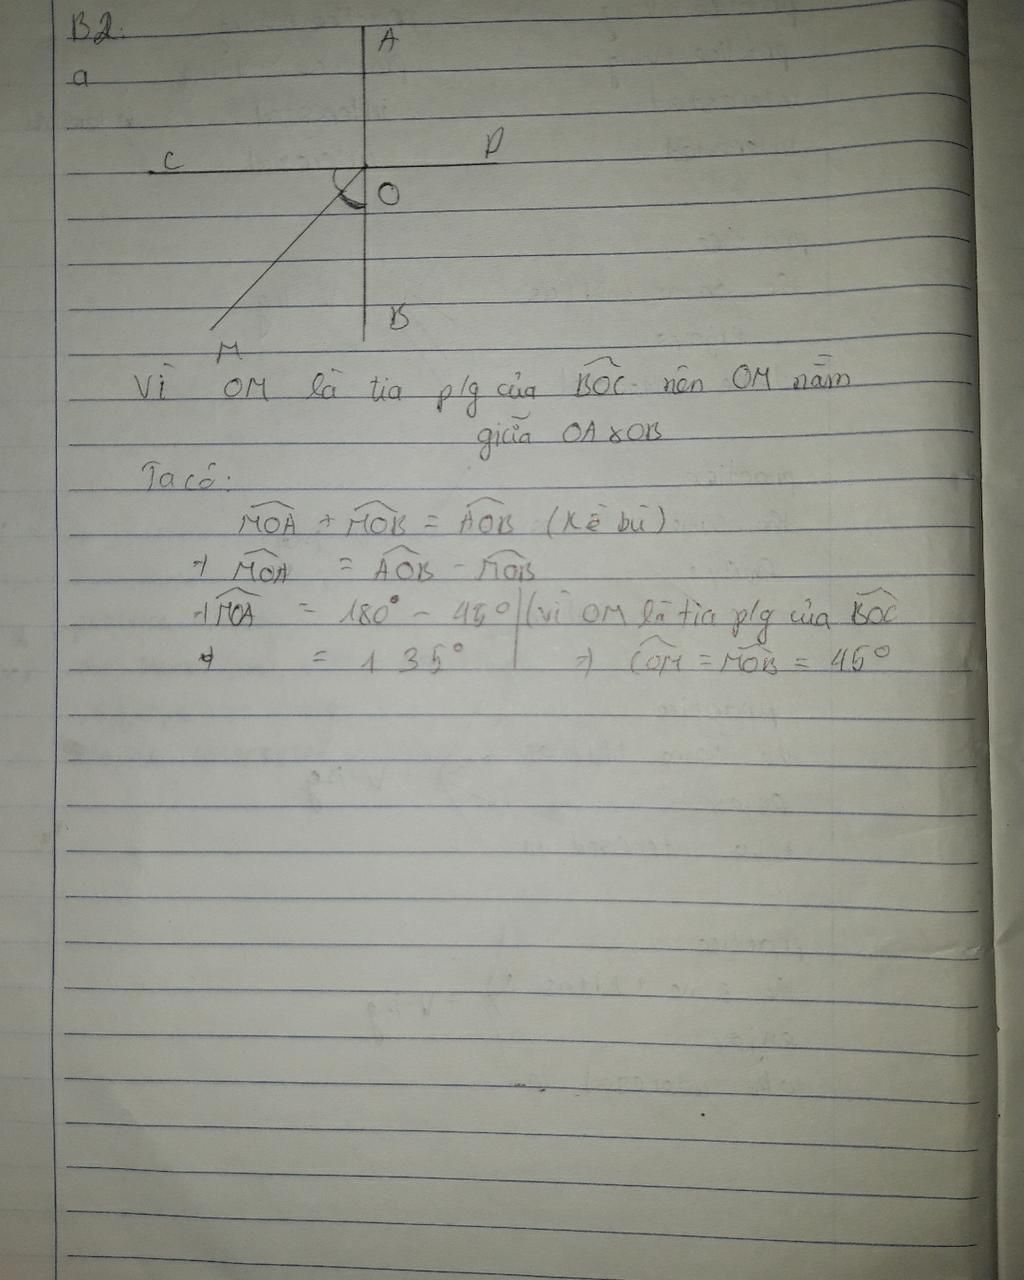 B2.
a
A
C
D
O
B
M
Vì OM là tia p/g của BOC nên OM nằm
giữa OA & OB
Ta có:
MOA + MOB = AOB (kề bù)
→ MOA = AOB - MOB
→ MOA = 180° - 45° | (vì OM là tia p/g của BOC
→ = 135° | → COM = MOB = 45°